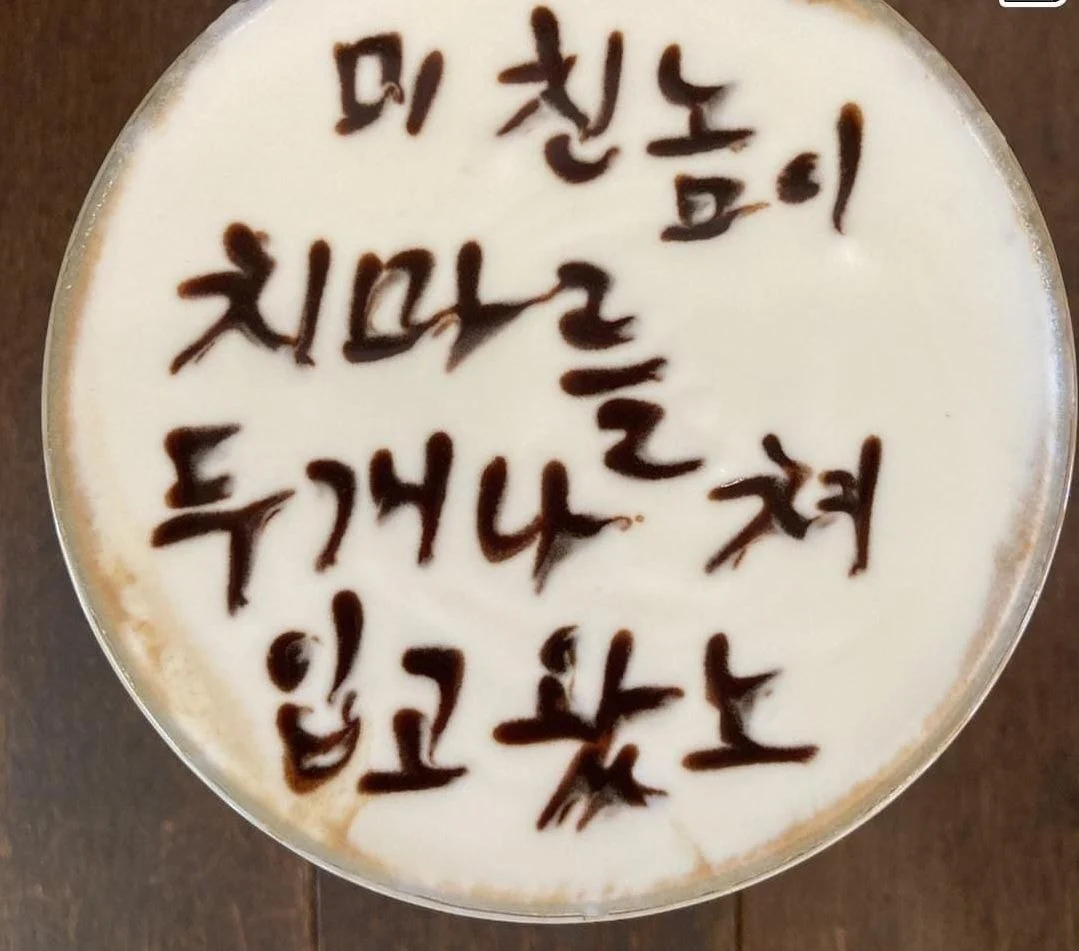 미친놈이
치마를
두개나 쳐
입고 왔노